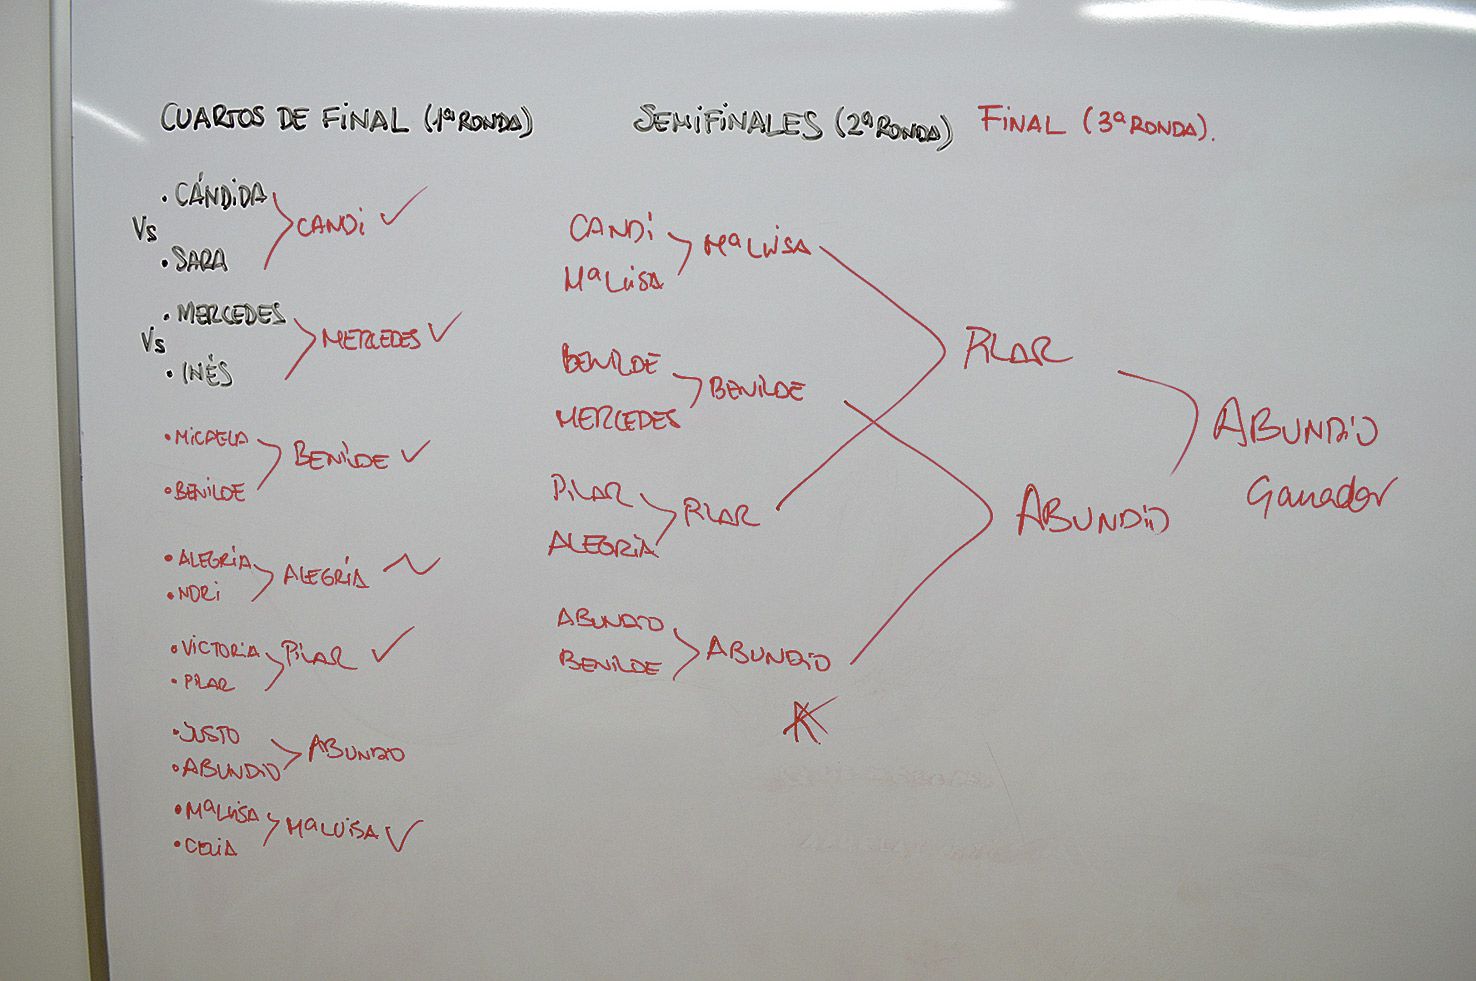 CUARTOS DE FINAL (1ª RONDA)
· CÁNDIDA
Vs
· SARA
CANDI ✓
· MERCEDES
Vs
· INÉS
MERCEDES ✓
· MICAELA
· BENILDE
BENILDE ✓
· ALEGRÍA
· NORI
ALEGRÍA
· VICTORIA
· PILAR
PILAR ✓
· JUSTO
· ABUNDIO
ABUNDIO
· Mª LUISA
· CELIA
Mª LUISA ✓
SEMIFINALES (2ª RONDA)
CANDI
Mª LUISA
Mª LUISA
BENILDE
MERCEDES
BENILDE
PILAR
ALEGRÍA
PILAR
ABUNDIO
BENILDE
ABUNDIO
FINAL (3ª RONDA).
PILAR
ABUNDIO
ABUNDIO
Ganador